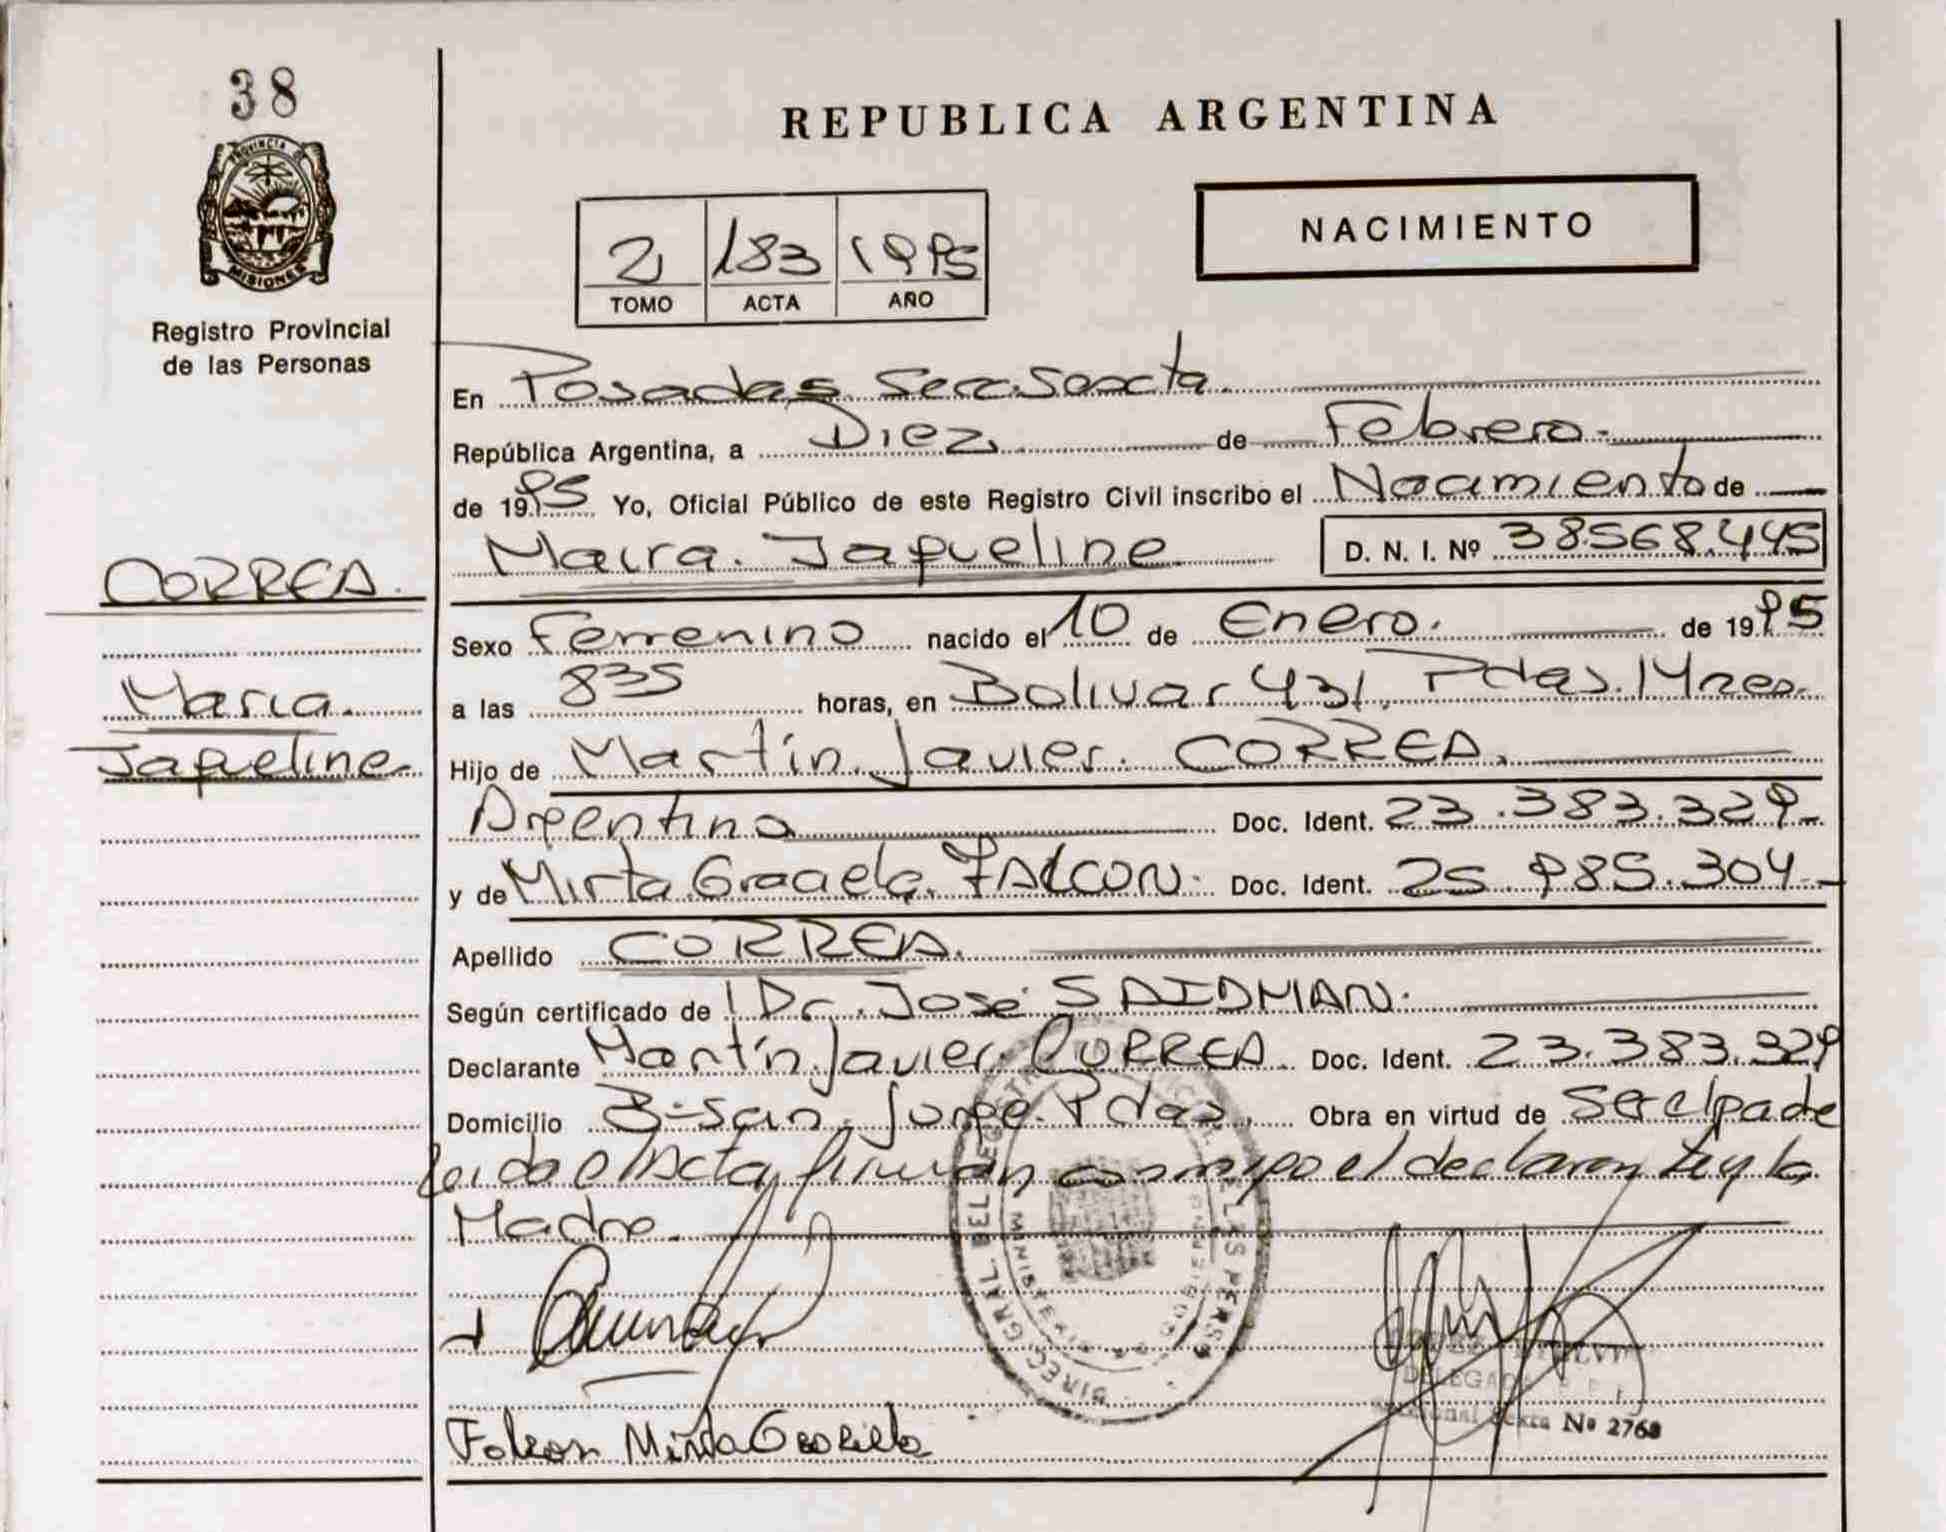 38
REPUBLICA ARGENTINA
PROVINCIA DE
MISIONES
NACIMIENTO
2 183 1995
TOMO ACTA AÑO
Registro Provincial
de las Personas
En Posadas Secc. Sexta.
República Argentina, a Diez de Febrero.
de 1995 Yo, Oficial Público de este Registro Civil inscribo el Nacimiento de
Maira. Jaqueline D. N. I. Nº 38.568.445
CORREA.
Sexo Femenino nacido el 10 de Enero. de 1995
Maria.
a las 835 horas, en Bolivar 431. Pdas. Mnes.
Jaqueline.
Hijo de Martín Javier. CORREA.
Argentino Doc. Ident. 23.383.329-
y de Mirta Graciela. FALCON. Doc. Ident. 25.985.304-
Apellido CORREA.
Según certificado de Dr. José SAIDMAN.
Declarante Martín Javier CORREA. Doc. Ident. 23.383.329
Domicilio B-San Jorge. Pdas. Obra en virtud de Ser el padre
Leida el Acta firman conmigo el declarante y la
Madre.
DIREC. GRAL. DEL REGISTRO DE LAS PERSONAS
MINISTERIO GOBIERNO
DELEGADA
Sexta Nº 2768
Falcon Mirta Graciela